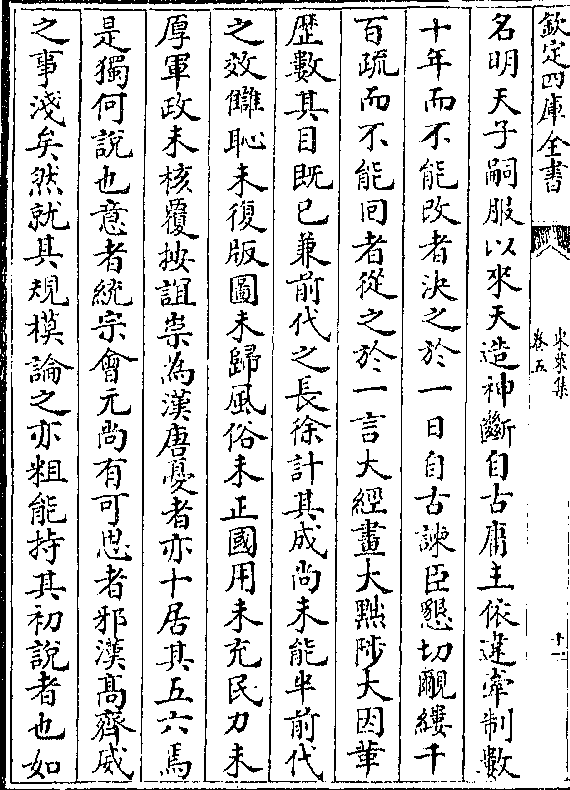 欽定四庫全書
東萊集
卷五
十一
名明天子嗣服以來天造神斷自古庸主依違牽制數
十年而不能改者決之於一日自古諫臣懇切覼縷千
百疏而不能回者從之於一言大經畫大黜陟大因革
歴數其目既已兼前代之長徐計其成尚未能半前代
之效讎恥未復版圖未歸風俗未正國用未充民力未
厚軍政未核覆按誼崇為漢唐憂者亦十居其五六焉
是獨何說也意者統宗會元尚有可思者邪漢髙齊威
之事淺矣然就其規模論之亦粗能持其初說者也如